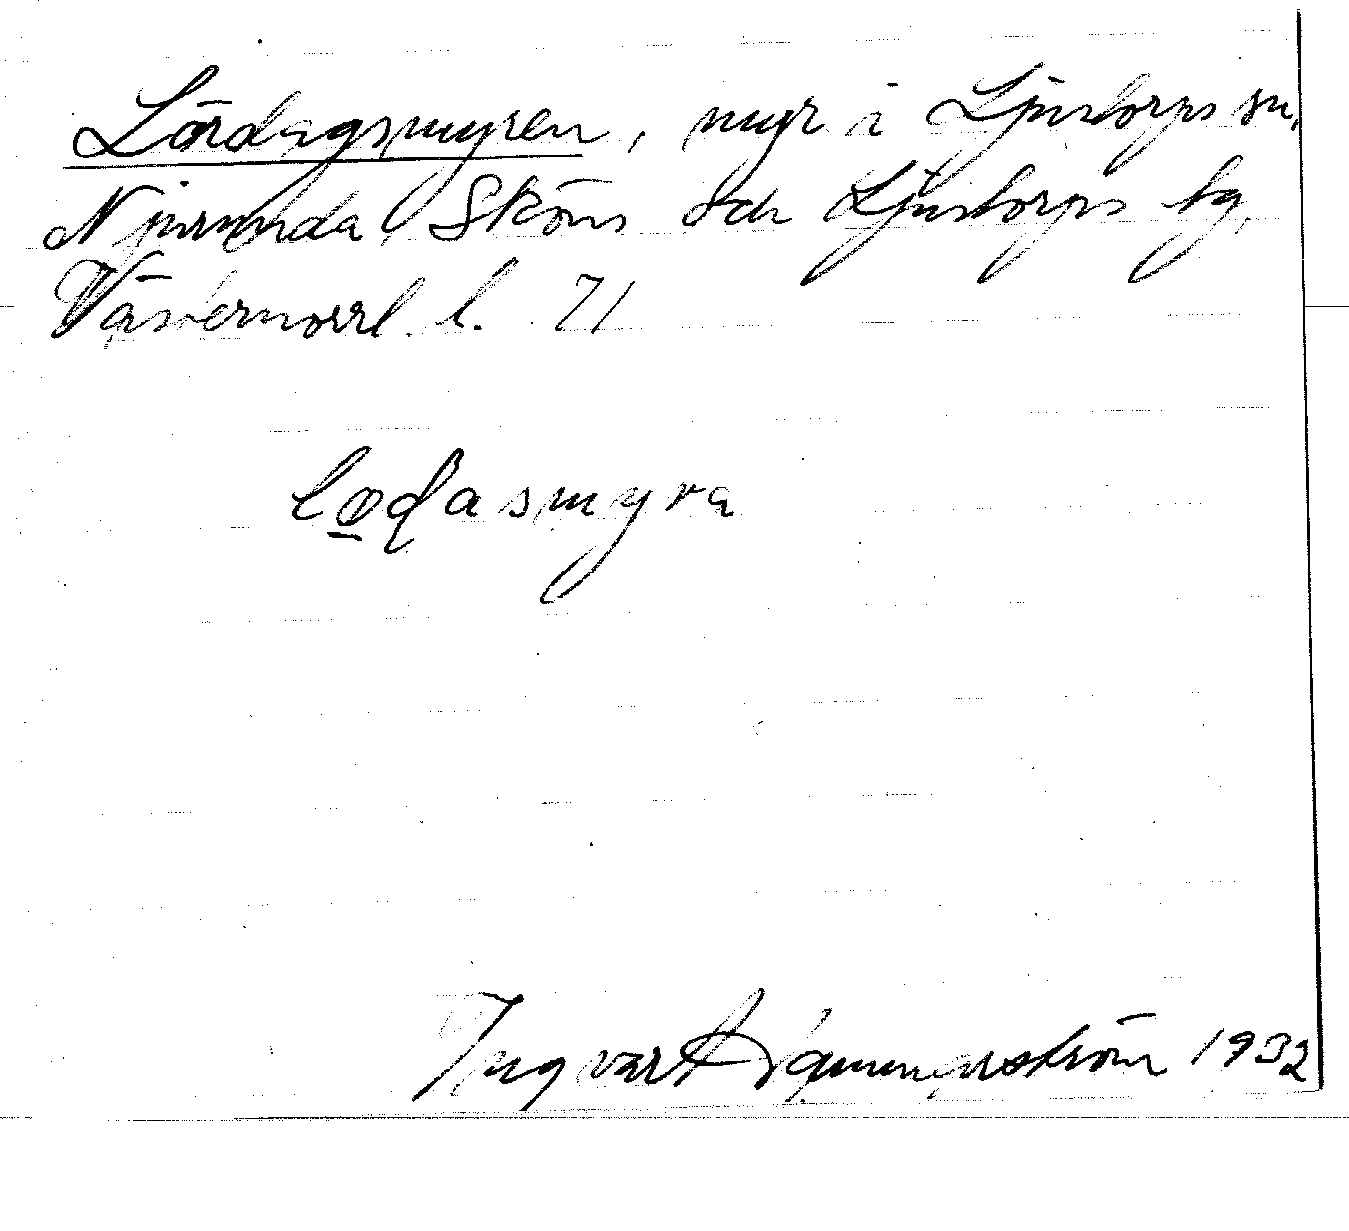 Lördagsmyren, myr i Ljustorps sn,
Njurunda, Sköns och Ljustorps tg,
Västernorrl. l. 71
lødasmyra
Ingvar 1932